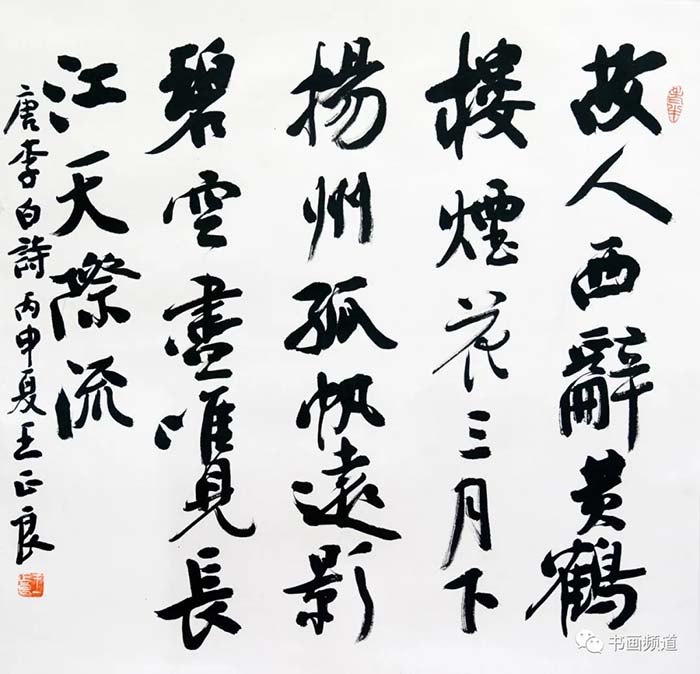 故人西辭黄鶴
樓煙花三月下
揚州孤帆遠影
碧空盡唯見長
江天際流
唐李白詩丙申夏王正良
书画频道